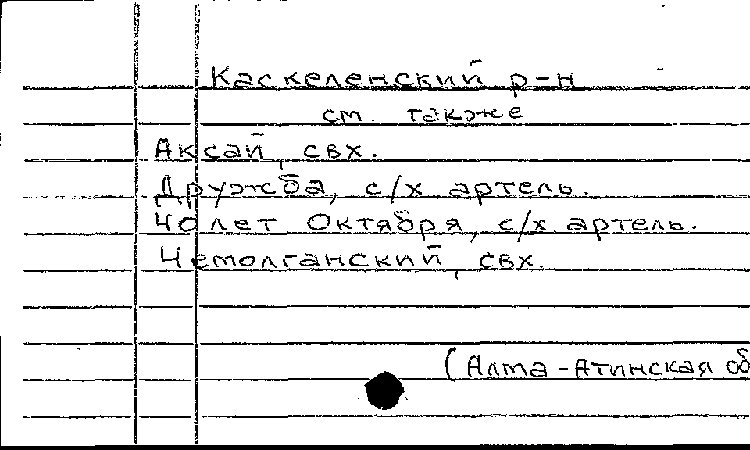 Каскеленский р-н
см. также
Аксай, свх.
Дружба, с/х артель.
40 лет Октября, с/х артель.
Чемолганский, свх.
(Алма-Атинская об